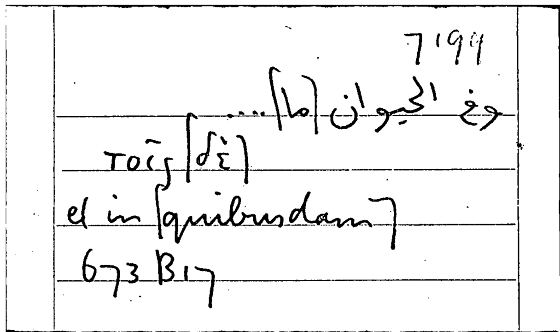 7199
وفى الحيوان [ما]....
τοῖς [δὲ]
et in [quibusdam]
673 B17